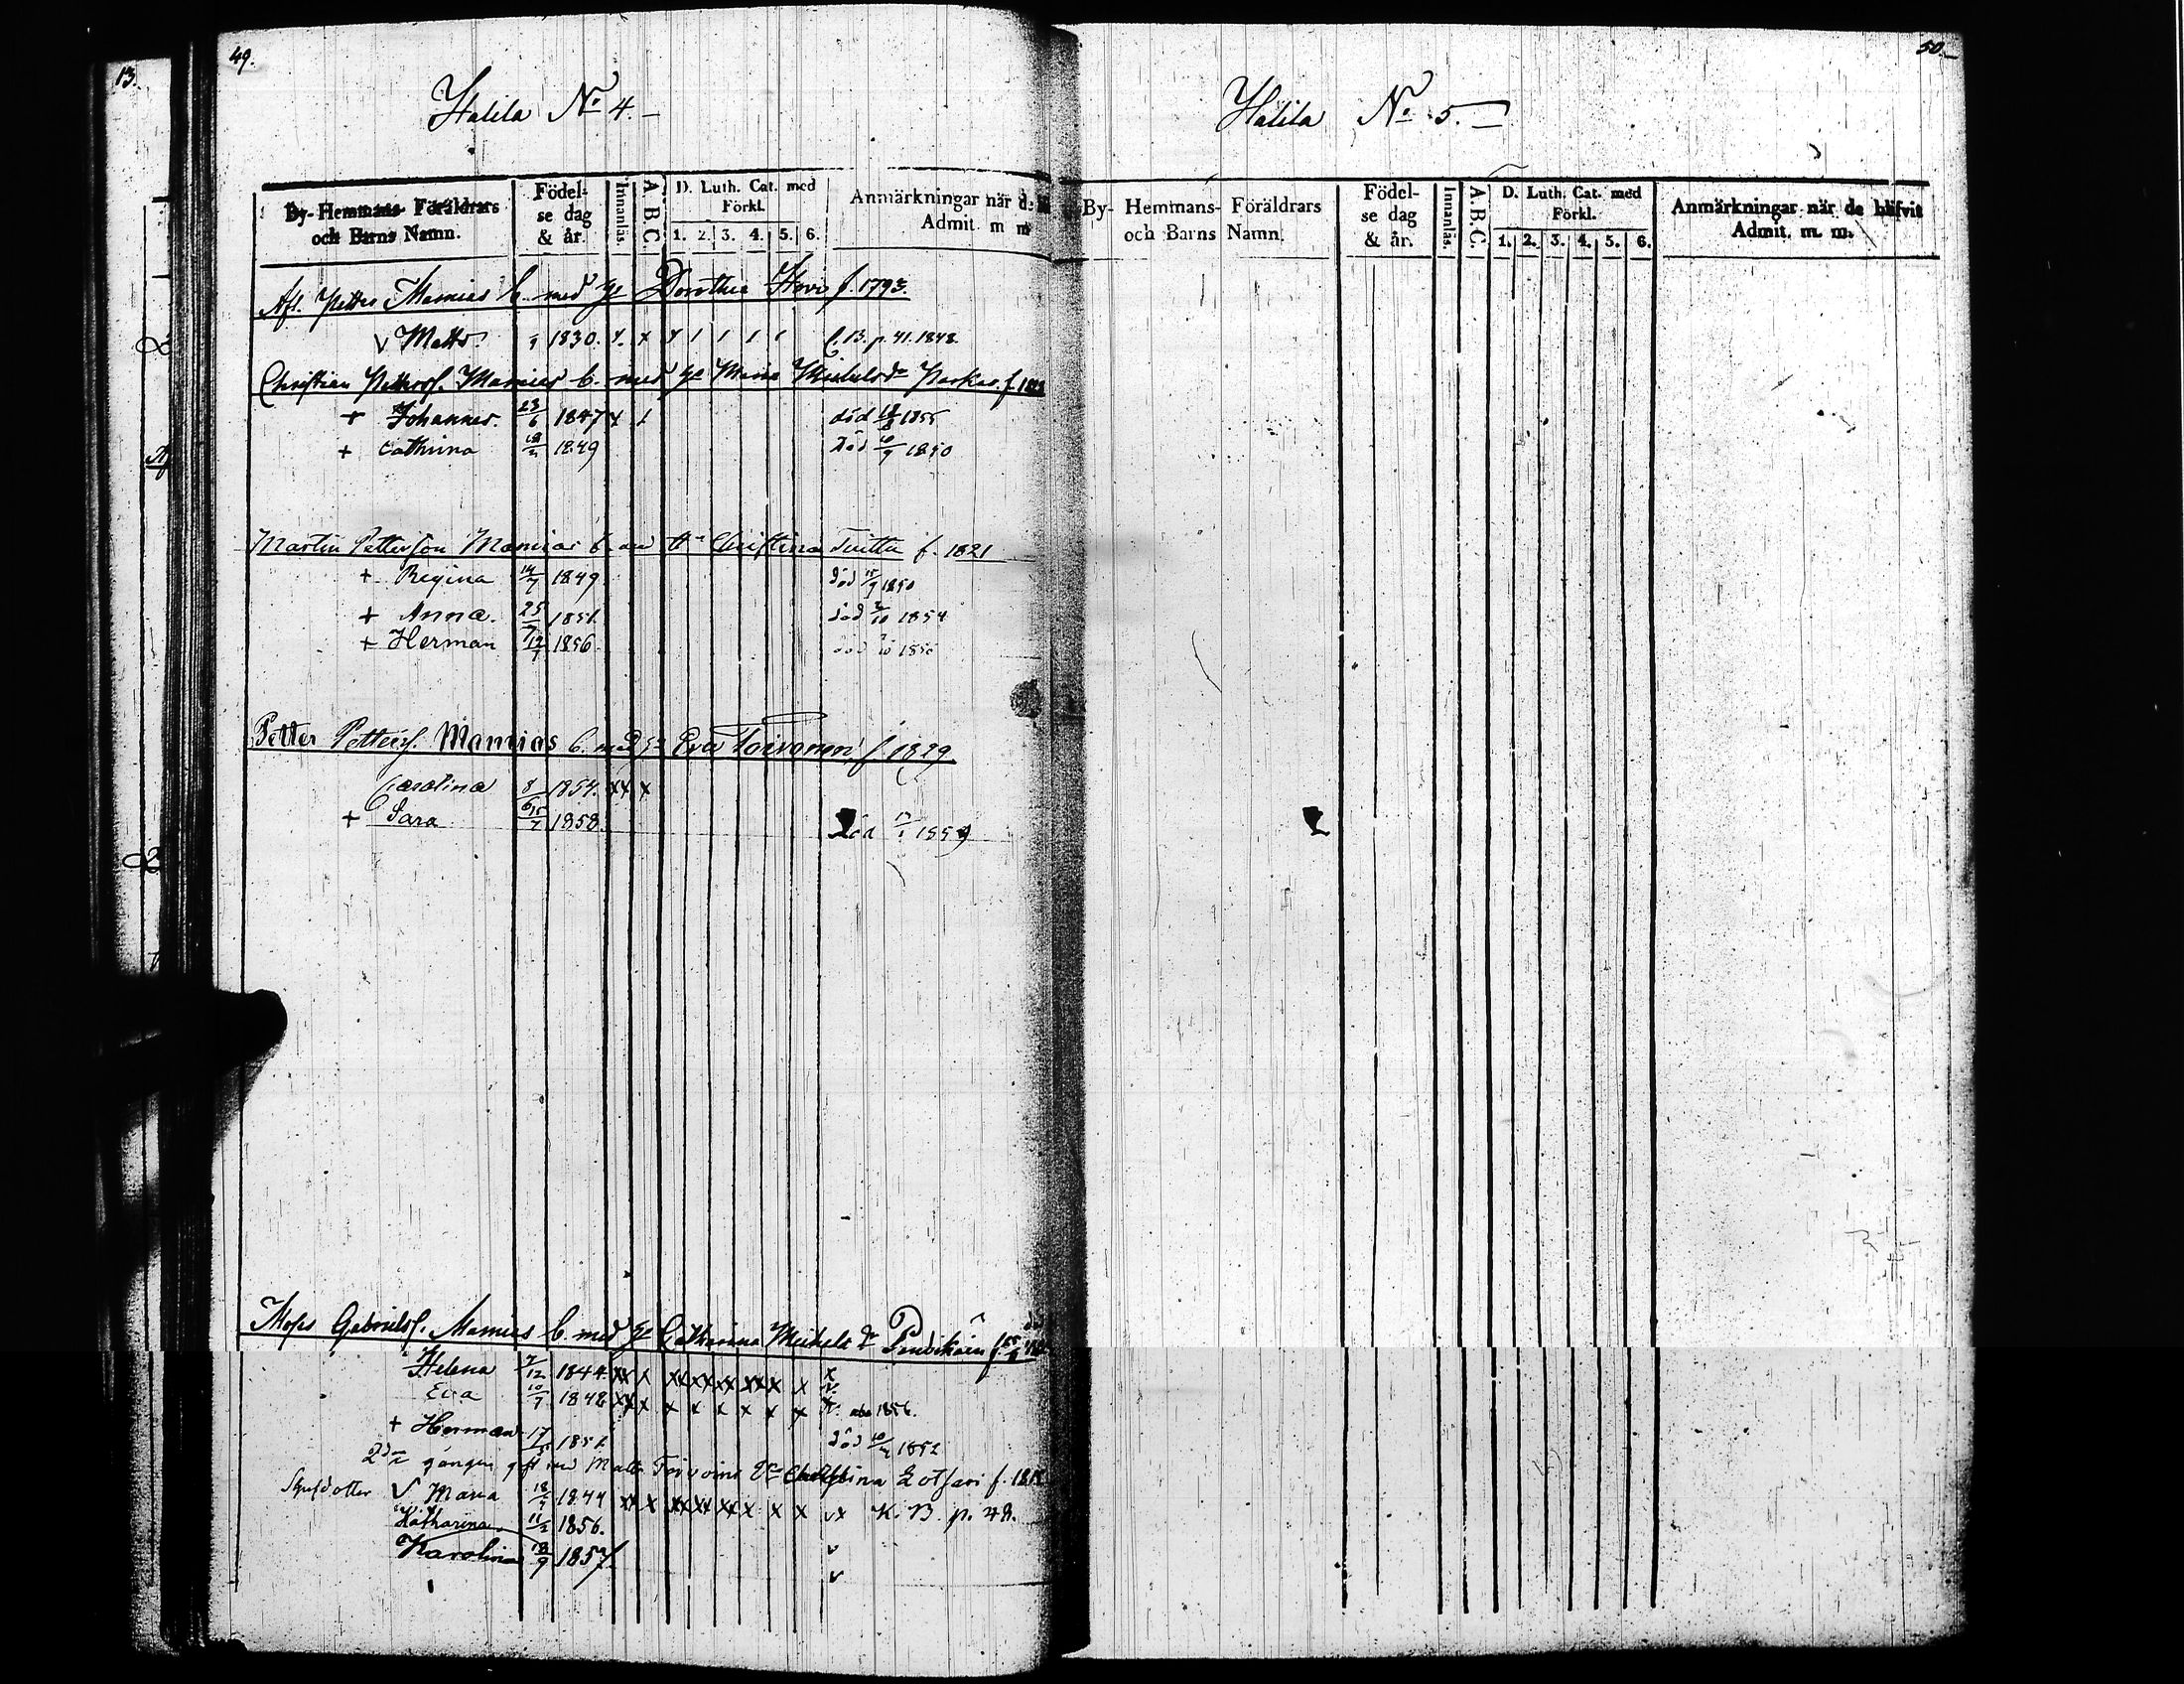 13.
49.
Halila No 4.
By- Hemmans- Föräldrars och Barns Namn.
Födel- se dag & år.
Innanläs.
A. B. C.
D. Luth. Cat. med Förkl.
1. 2. 3. 4. 5. 6.
Anmärkningar när d
Admit. m m
Afl. Petter Mamias b. med Dorothea Hovi f. 1793.
v Matts. 1830. x. x x 1 1 1 1 p. 41. 1848.
Christian Petterss. Mamias b. med Maria Michelsdr f.
+ Johannes. 23/6 1847 x 1 död 1855
+ Cathrina 1849 död 1850
Martin Petterson Mamias b. Christina Tuitta f. 1821
+ Regina 14/7 1849 död 15/9 1850
+ Anna. 25/7 1851. död 1854
+ Herman 12/7 1856 död 1856
Petter Petterss. Mamias b. med Eva Toivonen f. 1829.
Carolina 8/6 1854. xx x
+ Sara 15/7 1858. död 1859
Moses Gabrielss. Mamias b. med Catharina Michels dr
Helena 7/12 1844 xx x xx xx xx xx x x x
Eva 10/7 1848 xx x x x x x x x 1856.
+ Herman 17 1851 död 1852
2dra gången gift med Matts Christina f.
Styfdotter v Maria 18/7 1844 xx x xx xx xx x x vx K. B. p. 48.
Katharina 11/2 1856. v
Karolina 18/9 1857. v
50.
Halila No 5.
By- Hemmans- Föräldrars och Barns Namn.
Födel- se dag & år.
Innanläs.
A. B. C.
D. Luth. Cat. med Förkl.
1. 2. 3. 4. 5. 6.
Anmärkningar när de blifvit Admit. m. m.